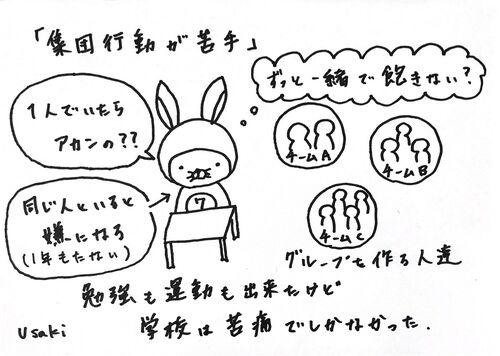 「集団行動が苦手」
ずっと一緒で飽きない?
1人でいたら
アカンの??
チームA
チームB
同じ人といると
嫌になる
(1年もたない)
7
チームC
グループを作る人達
勉強も運動も出来たけど
学校は苦痛でしかなかった.
usaki